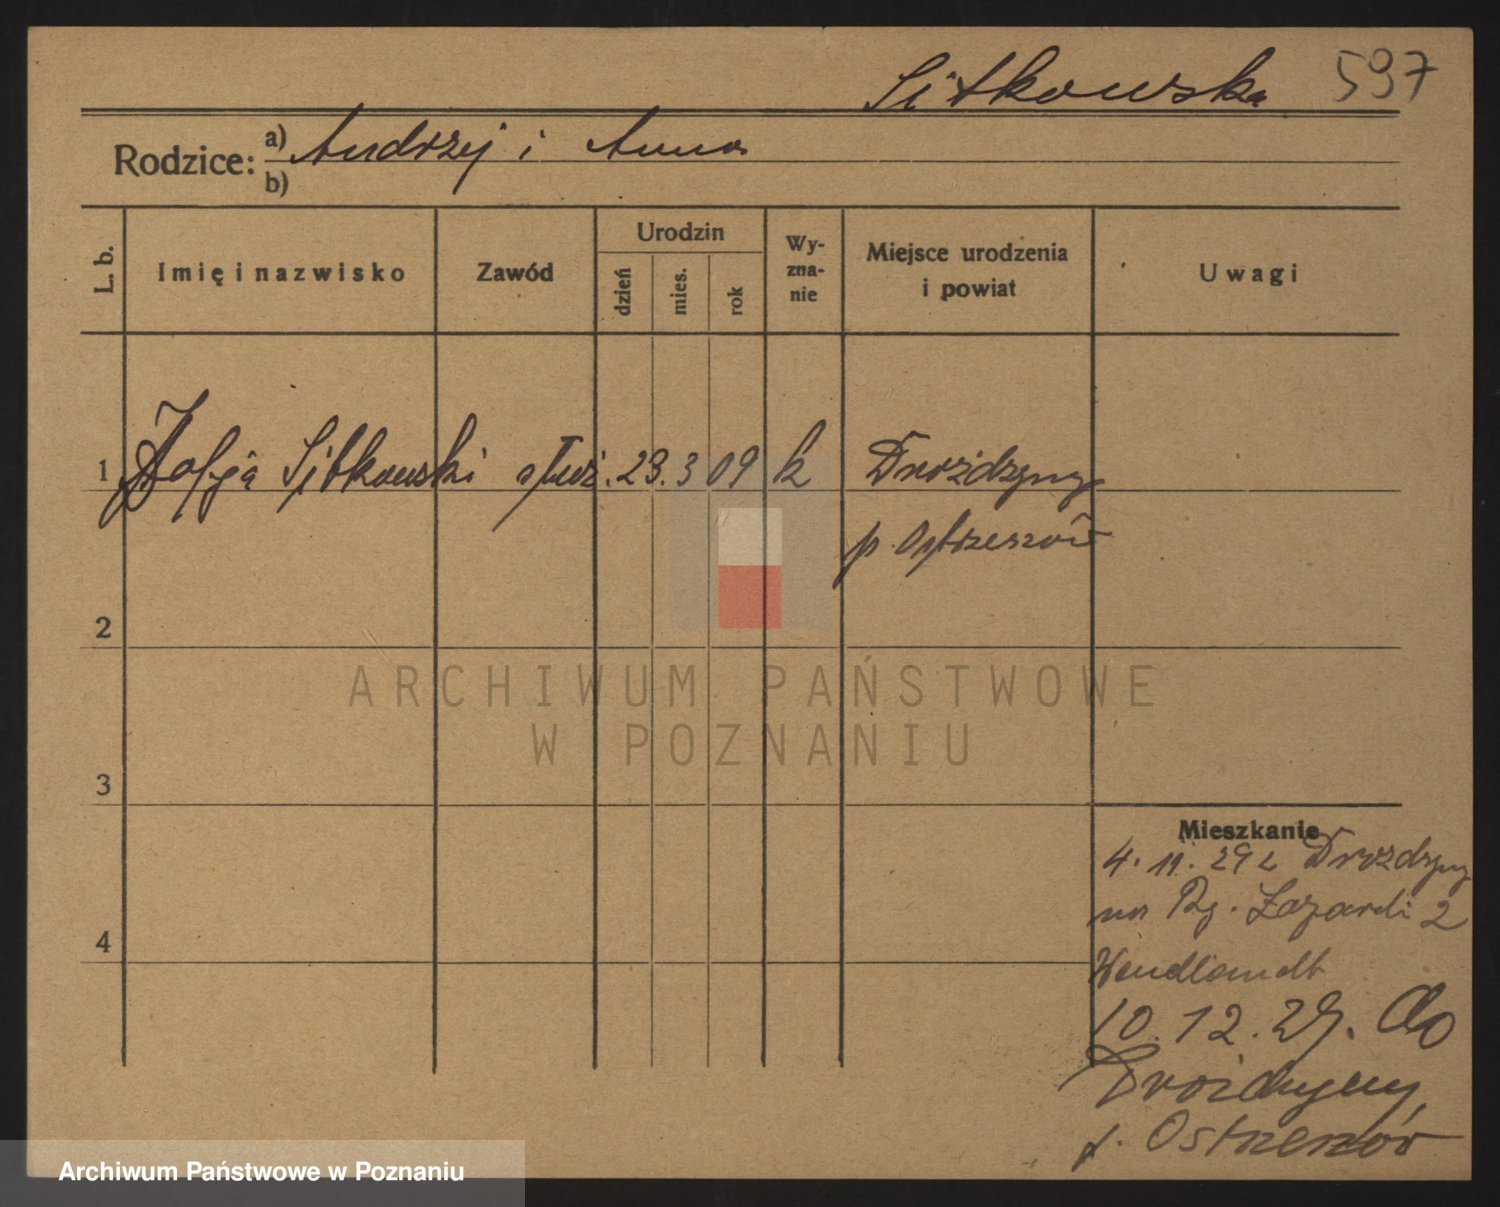 Sitkowska 597
Rodzice: a) Andrzej i Anna
b)
L. b. Imię i nazwisko Zawód Urodzin dzień mies. rok Wy-zna-nie Miejsce urodzenia i powiat Uwagi
1 Zofja Sitkowski służ. 23. 3 09 k Droździny
p. Ostrzeszów
2
3
4
Mieszkanie
4. 11. 29 z
na Łazarski 2
Wendlandt
10. 12. 29. do
p. Ostrzeszów
ARCHIWUM PAŃSTWOWE
W POZNANIU
Archiwum Państwowe w Poznaniu